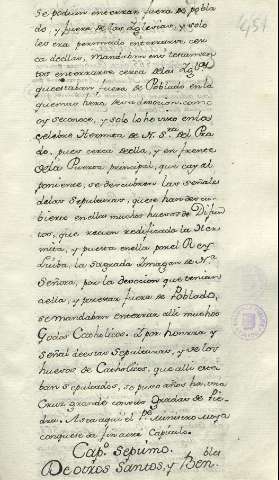 se podian enterrar fuera de pobla
do, y fuera de las Yglesias, y solo
les era permitido enterrarse cer
ca de ellas, mandaban en sus testamen
tos enterrarse cerca de las Ygl.as
que estaban fuera de Poblado en la
que mas tubo su devocion, como
se reconoce, y solo lo he visto en la
celebre Hermita de N. S.ra del Pra
do, pues cerca de ella, y en frente
de la Puerta principal, que cay al
poniente, se descubren las señales
de los sepulcros, que se han descu
bierto en ellos muchos huesos de Difun
tos, que recien redificada la Her
mita, y puesta en ella por el Rey
Liuba, la Sagrada Ymagen de N.a
Señora, por la devocion que tenian
a ella, y por estar fuera de Poblado,
se mandaban enterrar alli muchos
Godos Catholicos. Y por honrra y
señal de estas Sepulturas, y de los
huesos de Catholicos, que alli esta
ban sepultados, se puso años ha, una
Cruz grande con sus Gradas de Pie
dra. Hasta aqui el P.e Ministro cuya
conque da fin a este Capitulo.
Cap.o septimo.
De otros Santos, y Ben.bles